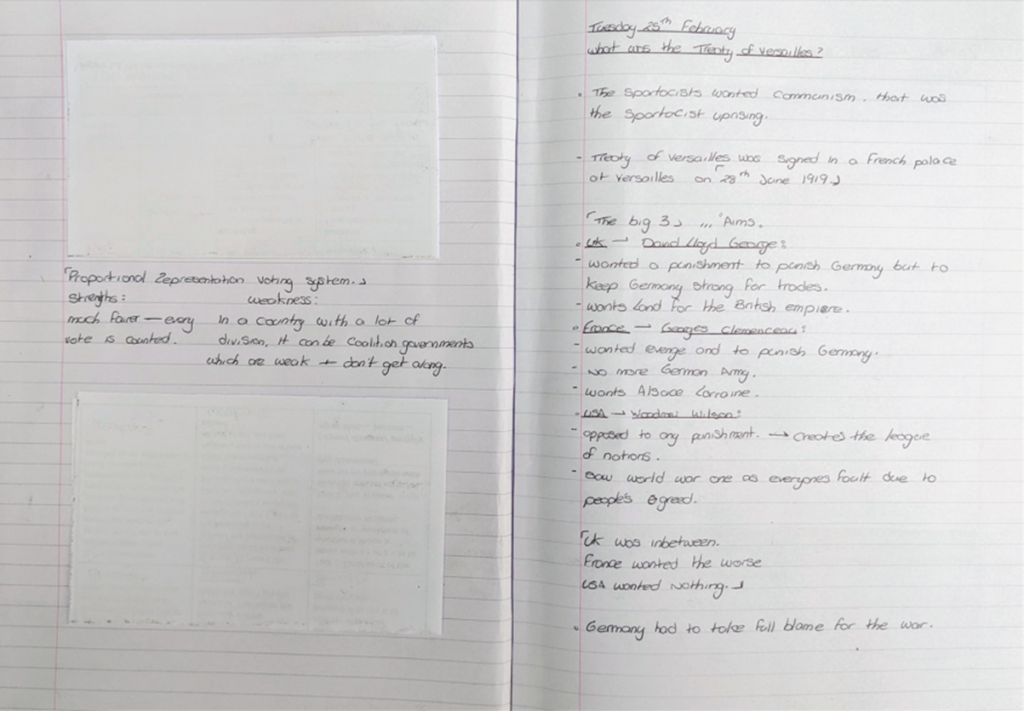 「Proportional Representation voting system.」
Strengths: weakness:
much fairer — every In a country with a lot of
vote is counted. division, it can be coalition governments
which are weak + don't get along.
Tuesday 25th February
What was the Treaty of Versailles?
• The Spartacists wanted Communism. that was
the Spartacist uprising.
- Treaty of Versailles was signed in a French palace
at Versailles on 「28th June 1919.」
「The big 3」 ... 'Aims.
• UK → David Lloyd George:
- wanted a punishment to punish Germany but to
keep Germany strong for trades.
- wants land for the British empiere.
• France → Georges Clemenceau:
- wanted evenge and to punish Germany.
- No more German Army.
- wants Alsace Lorraine.
• USA → Woodrow Wilson:
- opposed to any punishment. → creates the league
of nations.
- Saw world war one as everyones fault due to
people's greed.
「UK was inbetween.
France wanted the worse
USA wanted Nothing.」
• Germany had to take full blame for the war.